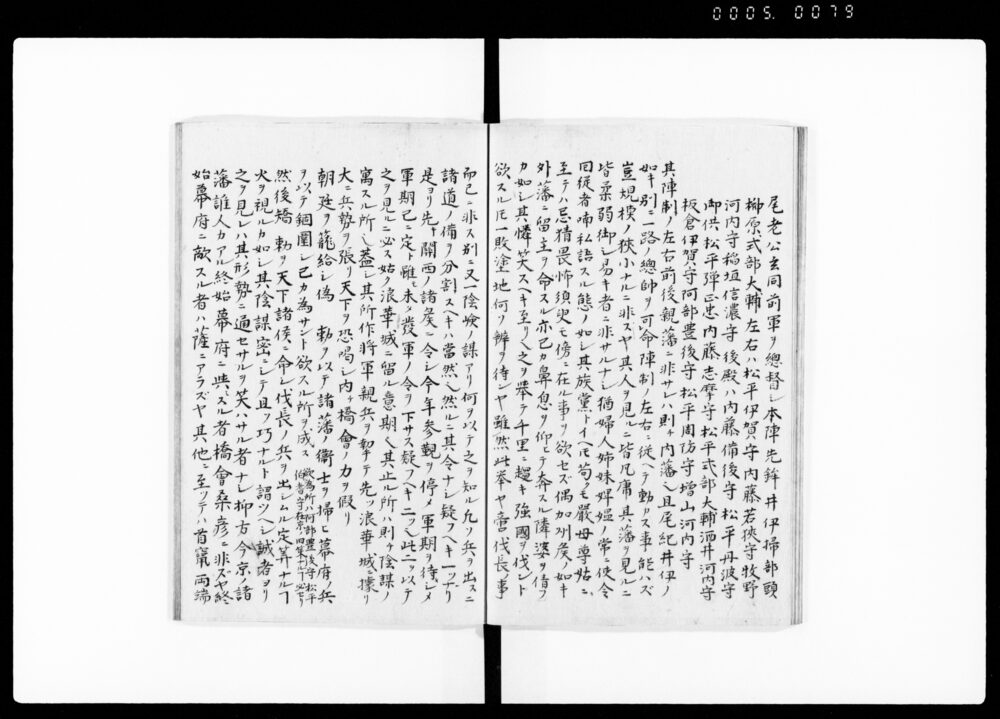 0005. 0079
尾老公玄同前軍ヲ總督シ本陣先鋒井伊掃部頭
榊原式部大輔左右ハ松平伊賀守内藤若狹守牧野
河内守稲垣信濃守後殿ハ内藤備後守松平丹波守
御供松平弾正忠内藤志摩守松平式部大輔酒井河内守
板倉伊賀守阿部豊後守松平周防守増山河内守
其陣制ノ左右前後親藩ニ非サレハ則チ内藩ニ且尾紀井伊ノ
如キ別ニ一路ノ總師ヲ可命陣制ノ左右ニ従ヘテ動カス事能ハズ
豈規模ノ狭小ナルニ非スヤ其人ヲ見ルニ皆凡庸具藩ヲ見ルニ
皆柔弱御シ易キ者ニ非サルナシ猶婦人姉妹婢媼ノ常ニ使令
同従者喃私語スル態ノ如シ其族黨トイヘ𪜈苟クモ嚴母尊姑ニ
至テハ忌猜畏怖須臾モ傍ニ在ル事ヲ欲セズ偶加州侯ノ如キ
外藩ニ留主ヲ命スル亦己カ鼻息ヲ仰ヒテ奔スル隣婆ヲ倩フ
カ如シ其憐笑スヘキ至リ之ヲ挙テ千里ニ趨キ強國ヲ伐ント
欲スル𪜈一敗塗地何ソ辨ヲ待シヤ雖然此挙ヤ啻伐長ノ事
而已ニ非ス別ニ又一陰嶮ノ謀アリ何ヲ以テ之ヲ知ル允ソ兵ヲ出スニ
諸道ノ備ヲ分割スヘキハ當然然ルニ其令ナシ疑フヘキ一ツナリ
是ヨリ先キ關西ノ諸侯ニ令シ今年参觀ヲ停メ軍期ヲ待シメ
軍期已ニ定ト雖モ未タ發軍ノ令ヲ下サス疑フヘキ二ツ此二ツヲ以テ
之ヲ見ルニ必ス姑ク浪華城ニ留ル意期ス其止ル所ハ則チ陰謀ノ
寓スル所ニ蓋シ其所作将軍親兵ヲ挈テ先ツ浪華城ニ據リ
大ニ兵勢ヲ張リ天下ヲ恐喝シ内チ橋會ノ力ヲ假リ
朝廷ヲ籠絡シ偽 勅ヲ以テ諸藩ノ衛士ヲ掃ヒ幕府ノ兵
ヲ以テ錮圍シ己カ為サント欲スル所ヲ成ス
然後矯 勅ヲ天下諸侯ニ命シ伐長ノ兵ヲ出シムル定算ナルヿ
火ヲ視ルカ如シ其陰謀密ニシテ且ツ巧ナルト謂ツヘシ誠者ヨリ
之ヲ見レハ其形勢ニ通セサルヲ笑ハサル者ナシ抑方今京ノ諸
藩誰人カアル終始幕府ニ與スル者橋會桑彦ニ非ズヤ終
始幕府ニ敵スル者ハ薩ニアラズヤ其他ニ至リテハ首竄両端